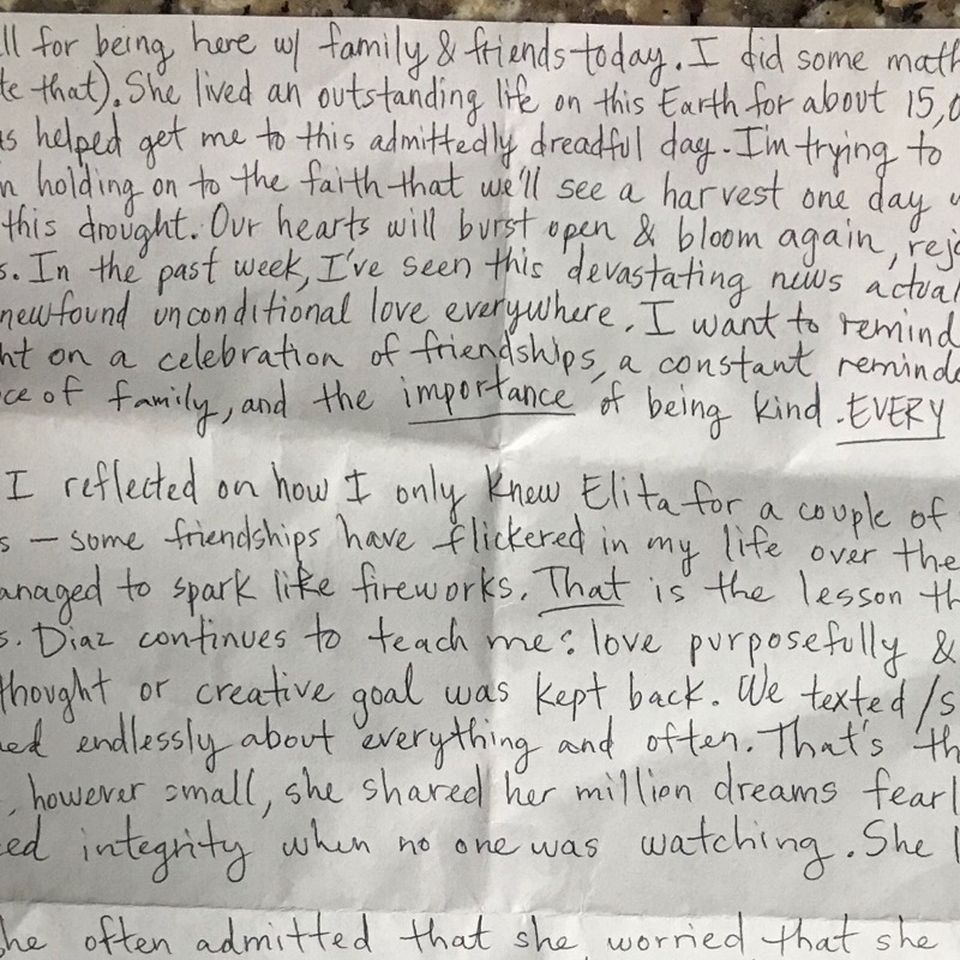 ll for being here w/ family & friends today. I did some math
te that). She lived an outstanding life on this Earth for about 15,0
as helped get me to this admittedly dreadful day. I'm trying to
n holding on to the faith that we'll see a harvest one day
this drought. Our hearts will burst open & bloom again, rejo
s. In the past week, I've seen this devastating news actual
newfound unconditional love everywhere. I want to remind
ht on a celebration of friendships, a constant reminde
ce of family, and the importance of being kind. EVERY
I reflected on how I only knew Elita for a couple of
s — some friendships have flickered in my life over the
anaged to spark like fireworks. That is the lesson th
s. Diaz continues to teach me: love purposefully &
thought or creative goal was kept back. We texted/s
ed endlessly about everything and often. That's th
, however small, she shared her million dreams fearl
ed integrity when no one was watching. She l
he often admitted that she worried that she